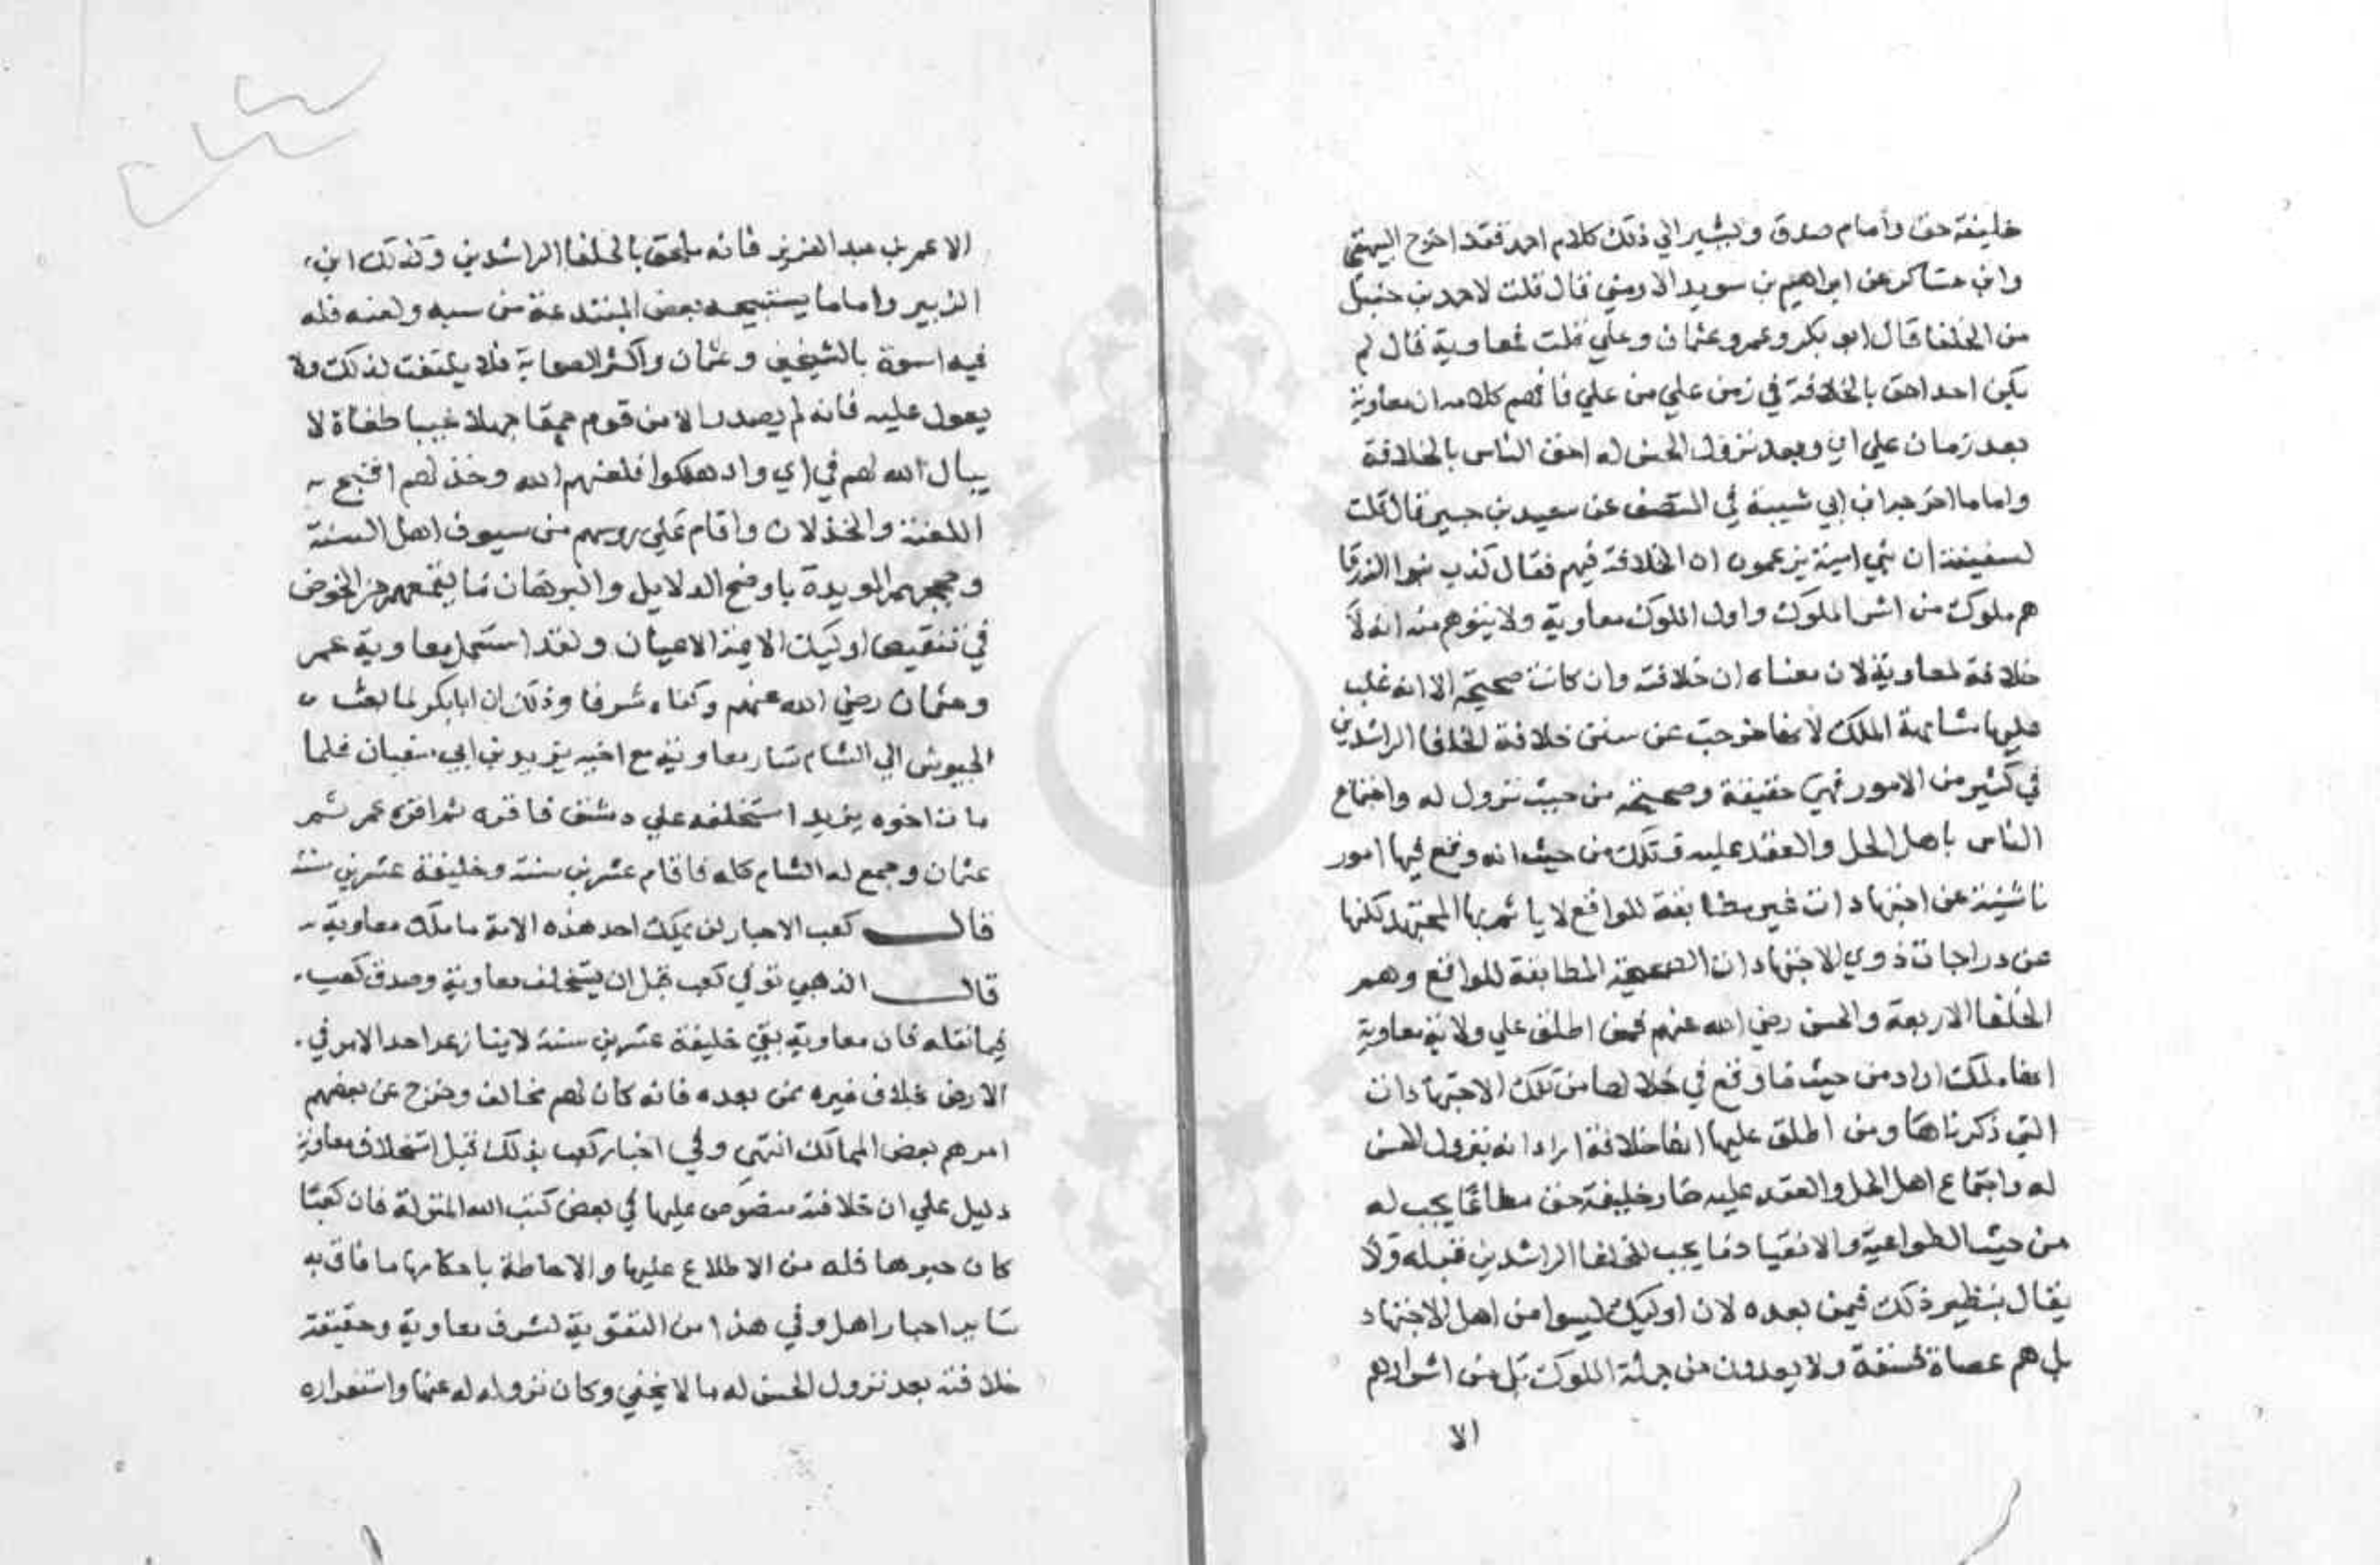 خليفة حق وامام صدق ويشير الي ذلك كلام احمد فقد اخرج البيهقي
وابن عساكر عن ابراهيم بن سويد الارمني قال قلت لاحمد بن حنبل
من الخلفا قال ابو بكر وعمر وعثمان وعلي قلت فمعاوية قال لم
يكن احد احق بالخلافة في زمن علي من علي فافهم كلامه ان معاوية
بعد زمان علي اي وبعد نزول الحسن له احق الناس بالخلافة
واما ما اخرجه ابن ابي شيبة في المصنف عن سعيد بن جمهان قال قلت
لسفينة ان بني امية يزعمون ان الخلافة فيهم فقال كذب بنوا الزرقا
هم ملوك من اشر الملوك واول الملوك معاوية ولا يتوهم منه انه لا
خلافة لمعاوية لان معناه ان خلافته وان كانت صحيحة الا انه غلب
عليها مشابهة الملك لانها خرجت عن سنن خلافة الخلفا الراشدين
في كثير من الامور فهي حقيقة وصحيحة من حيث نزول له واجتماع
الناس باهل الحل والعقد عليه وتلك من حيث انه وقع فيها امور
ناشئة عن اجتهادات غير مطابقة للواقع لا ياثم بها المجتهد لكنها
عن دراجات ذوي الاجتهادات الصحيحة المطابقة للواقع وهم
الخلفا الاربعة والحسن رضي الله عنهم فمن اطلق علي ولاية معاوية
انها ملك اراد من حيث ما وقع في خلالها من تلك الاجتهادات
التي ذكرناها ومن اطلق عليها انها خلافة اراد انه بنزول الحسن
له واجتماع اهل الحل والعقد عليه صار خليفة حق مطاعا يجب له
من حيث الطواعية والانقياد ما يجب للخلفا الراشدين قبله ولا
يقال بنظير ذلك فيمن بعده لان اوليك ليسوا من اهل الاجتهاد
بل هم عصاة فسقة ولا يعدون من جملة الملوك بل من اشرارهم
الا
الا عمر بن عبد العزيز فانه ملحق بالخلفا الراشدين وكذلك ابن
الزبير واما ما يستبيحه بعض المبتدعة من سبه ولعنه فله
فيه اسوة بالشيخين وعثمان واكثر الصحابة فلا يلتفت لذلك ولا
يعول عليه فانه لم يصدر الا من قوم حمقا جهلا غبيا طغاة لا
يبال الله لهم في اي واد هلكوا فلعنهم الله وخذلهم اقبح
اللعنة والخذلان واقام علي روسهم من سيوف اهل السنة
وحججهم المويدة باوضح الدلايل والبرهان ما يقمعهم عن الخوض
في تنقيص اوليك الايمة الاعيان ولقد استعمل معاوية عمر
وعثمان رضي الله عنهم وكفاه شرفا وذلك ان ابا بكر لما بعث
الجيوش الي الشام سار معاوية مع اخيه يزيد بن ابي سفيان فلما
مات اخوه يزيد استخلفه علي دمشق فاقره ثم اقره عمر ثم
عثمان وجمع له الشام كله فاقام عشرين سنة وخليفة عشرين سنة
قال كعب الاحبار لن يملك احد هذه الامة ما ملك معاوية
قال الذهبي توفي كعب قبل ان يستخلف معاوية وصدق كعب
فيما نقله فان معاوية بقي خليفة عشرين سنة لا ينازعه احد الامر في
الارض بخلاف غيره ممن بعده فانه كان لهم مخالف وخرج عن بعضهم
امرهم بعض الممالك انتهي وفي اخبار كعب بذلك قبل استخلاف معاوية
دليل علي ان خلافته منصوص عليها في بعض كتب الله المنزلة فان كعبا
كان حبرها فله من الاطلاع عليها والاحاطة باحكامها ما فاق به
ساير احبار اهل وفي هذا من التقوية لشرف معاوية وحقيقة
خلافته بعد نزول الحسن له ما لا يخفي وكان نزوله له عنها واستقراره